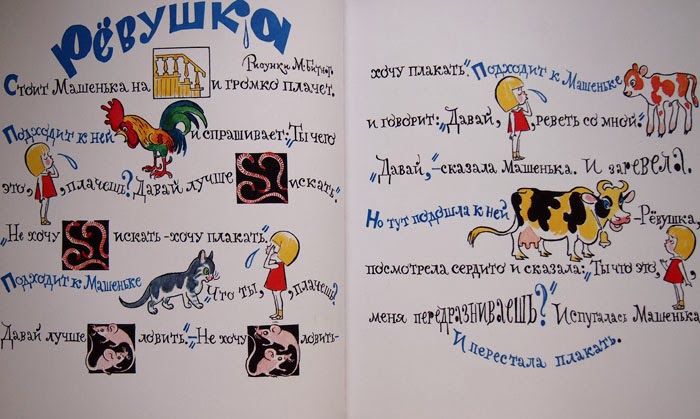 РЁВУШКА
Рисунки М. Битного
Стоит Машенька на и громко плачет.
Подходит к ней и спрашивает: „Ты чего
это, , плачешь? Давай лучше искать".
„Не хочу искать - хочу плакать."
Подходит к Машеньке „Что ты, , плачешь?
Давай лучше ловить." – „Не хочу ловить -
хочу плакать". Подходит к Машеньке
и говорит: „Давай, , реветь со мной."
„Давай," – сказала Машенька. И заревела.
Но тут подошла к ней – Рёвушка,
посмотрела сердито и сказала: „Ты что это,
меня передразниваешь?" Испугалась Машенька
И перестала плакать.